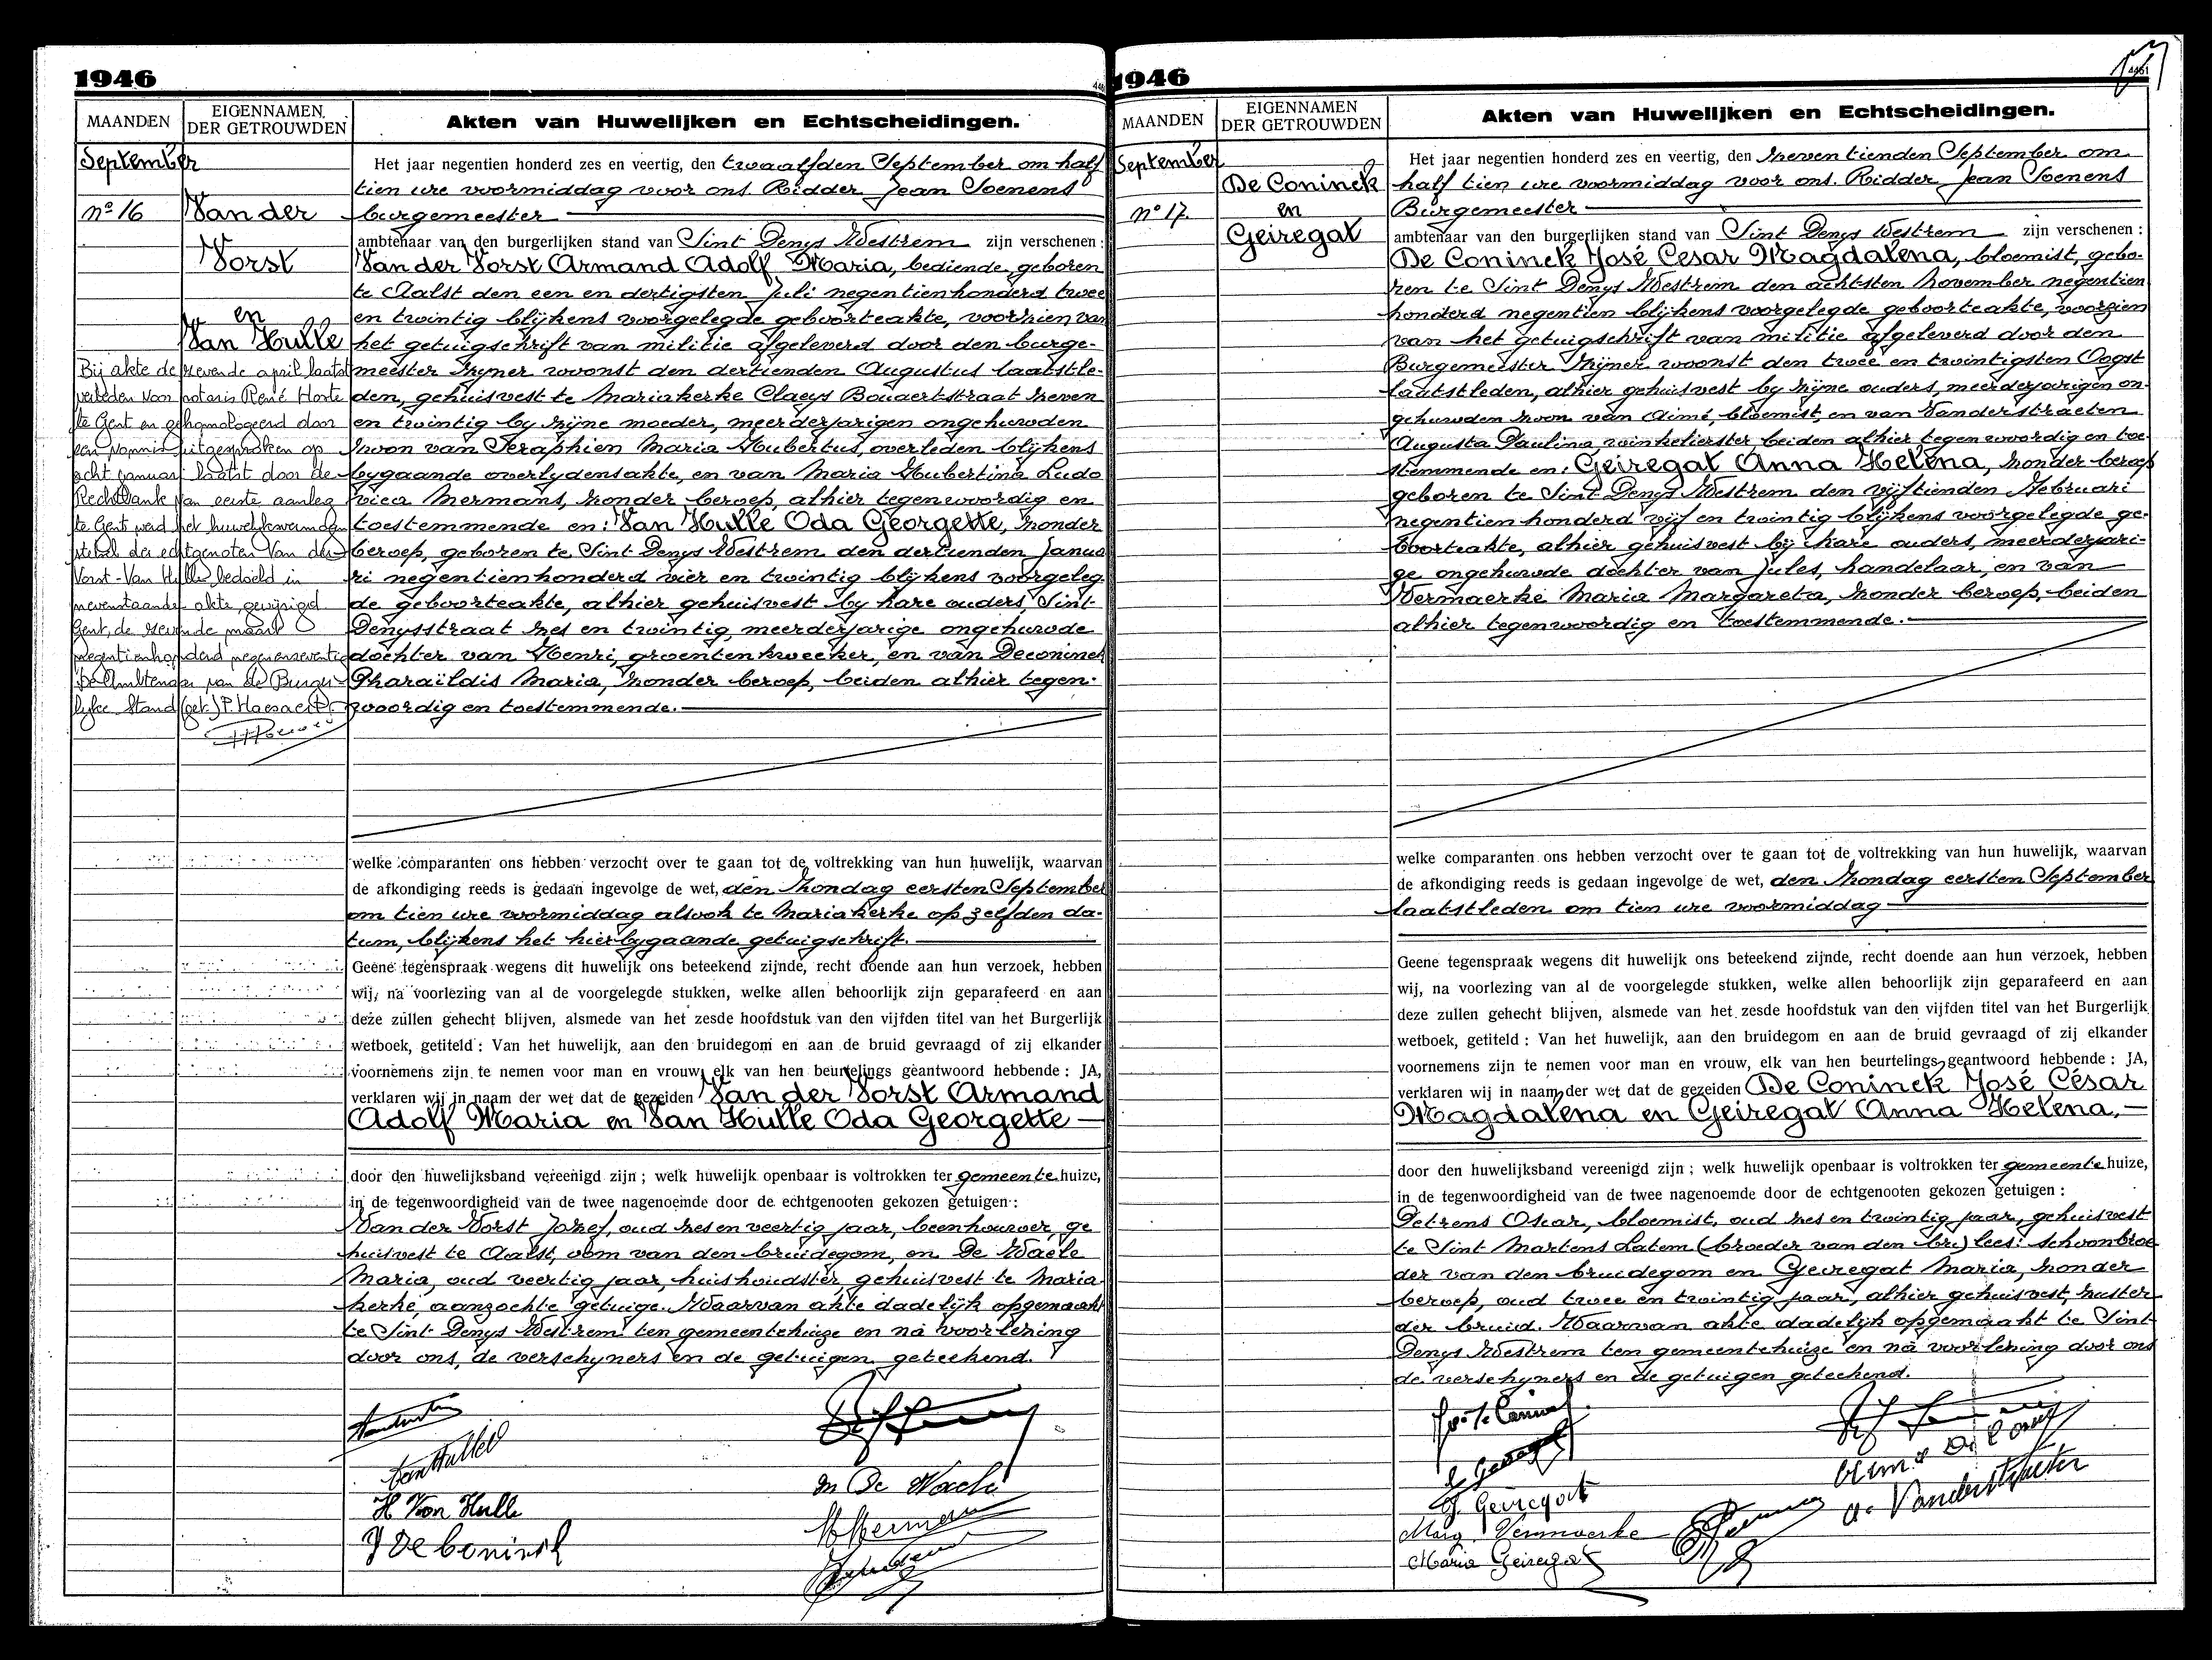 1946
MAANDEN
EIGENNAMEN
DER GETROUWDEN
Akten van Huwelijken en Echtscheidingen.
September
nº 16
Van der
Vorst
en
Van Hulle
Bij akte de zevende april laatst
verleden voor notaris René Horte
te Gent en gehomologeerd door
een vonnis uitgesproken op
acht januari laatst door de
Rechtbank van eerste aanleg
te Gent werd het huwelijksvermogen
stelsel der echtgenoten Van der
Vorst-Van Hulle bedoeld in
nevenstaande akte, gewijzigd
Gent, de zevende maart
negentienhonderd negenenzeventig
De Ambtenaar van de Burger
lijke Stand (get.) P. Haesaert
Het jaar negentien honderd zes en veertig, den twaalfden September om half
tien ure voormiddag voor ons Ridder Jean Soenens
burgemeester
ambtenaar van den burgerlijken stand van Sint Denys Westrem zijn verschenen:
Van der Vorst Armand Adolf Maria, bediende, geboren
te Aalst den een en dertigsten Juli negentienhonderd twee
en twintig blijkens voorgelegde geboorteakte, voorzien van
het getuigschrift van militie afgeleverd door den burge-
meester zyner woonst den dertienden Augustus laatstle-
den, gehuisvest te Mariakerke Claeys Bouaertstraat zeven
en twintig by zijne moeder, meerderjarigen ongehuwden
zoon van Seraphien Maria Houbertus, overleden blijkens
bygaande overlydensakte, en van Maria Hubertina Ludo
vica Mermans, zonder beroep, alhier tegenwoordig en
toestemmende en: Van Hulle Oda Georgette, zonder
beroep, geboren te Sint Denys Westrem den dertienden Janua
ri negentienhonderd vier en twintig blijkens voorgeleg-
de geboorteakte, alhier gehuisvest by hare ouders, Sint-
Denysstraat zes en twintig, meerderjarige ongehuwde
dochter van Henri, groentenkweeker, en van Deconinck
Pharaïldis Maria, zonder beroep, beiden alhier tegen-
woordig en toestemmende.
welke comparanten ons hebben verzocht over te gaan tot de voltrekking van hun huwelijk, waarvan
de afkondiging reeds is gedaan ingevolge de wet, den zondag eersten September
om tien ure voormiddag alsook te Mariakerke op zelfden da-
tum, blijkens het hierbygaande getuigschrift.
Geene tegenspraak wegens dit huwelijk ons beteekend zijnde, recht doende aan hun verzoek, hebben
wij, na voorlezing van al de voorgelegde stukken, welke allen behoorlijk zijn geparafeerd en aan
deze zullen gehecht blijven, alsmede van het zesde hoofdstuk van den vijfden titel van het Burgerlijk
wetboek, getiteld : Van het huwelijk, aan den bruidegom en aan de bruid gevraagd of zij elkander
voornemens zijn te nemen voor man en vrouw, elk van hen beurtelings geantwoord hebbende : JA,
verklaren wij in naam der wet dat de gezeiden Van der Vorst Armand
Adolf Maria en Van Hulle Oda Georgette
door den huwelijksband vereenigd zijn ; welk huwelijk openbaar is voltrokken ter gemeentehuize,
in de tegenwoordigheid van de twee nagenoemde door de echtgenooten gekozen getuigen :
Van der Vorst Jozef, oud zes en veertig jaar, beenhouwer, ge
huisvest te Aalst, oom van den bruidegom, en De Waele
Maria, oud veertig jaar, huishoudster, gehuisvest te Maria
kerke, aanzochte getuige. Waarvan akte dadelijk opgemaakt
te Sint Denys Westrem ten gemeentehuize en na voorlezing
door ons, de verschyners en de getuigen geteekend.
Van Hulle O
H Van Hulle
P De Coninck
M De Waele
M Mermans
1946
MAANDEN
EIGENNAMEN
DER GETROUWDEN
Akten van Huwelijken en Echtscheidingen.
September
nº 17.
De Coninck
en
Geiregat
Het jaar negentien honderd zes en veertig, den zeventienden September om
half tien ure voormiddag voor ons Ridder Jean Soenens
Burgemeester
ambtenaar van den burgerlijken stand van Sint Denys Westrem zijn verschenen :
De Coninck José Cesar Magdalena, bloemist, gebo-
ren te Sint Denys Westrem den achtsten November negentien
honderd negentien blijkens voorgelegde geboorteakte, voorzien
van het getuigschrift van militie afgeleverd door den
Burgemeester zijner woonst den twee en twintigsten Oogst
laatstleden, alhier gehuisvest by zijne ouders, meerderjarigen on-
gehuwden zoon van Aimé, bloemist, en van Vanderstraeten
Augusta Paulina, winkelierster, beiden alhier tegenwoordig en toe-
stemmende en: Geiregat Anna Helena, zonder beroep
geboren te Sint Denys Westrem den vijftienden Februari
negentien honderd vijf en twintig blijkens voorgelegde ge-
boorteakte, alhier gehuisvest bij hare ouders, meerderjari-
ge ongehuwde dochter van Jules, handelaar, en van
Vermaerke Maria Margareta, zonder beroep, beiden
alhier tegenwoordig en toestemmende.
welke comparanten ons hebben verzocht over te gaan tot de voltrekking van hun huwelijk, waarvan
de afkondiging reeds is gedaan ingevolge de wet, den zondag eersten September
laatstleden om tien ure voormiddag
Geene tegenspraak wegens dit huwelijk ons beteekend zijnde, recht doende aan hun verzoek, hebben
wij, na voorlezing van al de voorgelegde stukken, welke allen behoorlijk zijn geparafeerd en aan
deze zullen gehecht blijven, alsmede van het zesde hoofdstuk van den vijfden titel van het Burgerlijk
wetboek, getiteld : Van het huwelijk, aan den bruidegom en aan de bruid gevraagd of zij elkander
voornemens zijn te nemen voor man en vrouw, elk van hen beurtelings geantwoord hebbende : JA,
verklaren wij in naam der wet dat de gezeiden De Coninck José César
Magdalena en Geiregat Anna Helena.
door den huwelijksband vereenigd zijn ; welk huwelijk openbaar is voltrokken ter gemeentehuize,
in de tegenwoordigheid van de twee nagenoemde door de echtgenooten gekozen getuigen :
Petrens Oscar, bloemist, oud zes en twintig jaar, gehuisvest
te Sint Martens Latem (broeder van den bri) lees: schoonbroe
der van den bruidegom en Geiregat Maria, zonder
beroep, oud twee en twintig jaar, alhier gehuisvest, zuster
der bruid. Waarvan akte dadelijk opgemaakt te Sint
Denys Westrem ten gemeentehuize en na voorlezing door ons
de verschyners en de getuigen geteekend.
A. Geiregat
J. Geiregat
Marg. Vermaerke
Maria Geiregat
A. Vanderstraeten